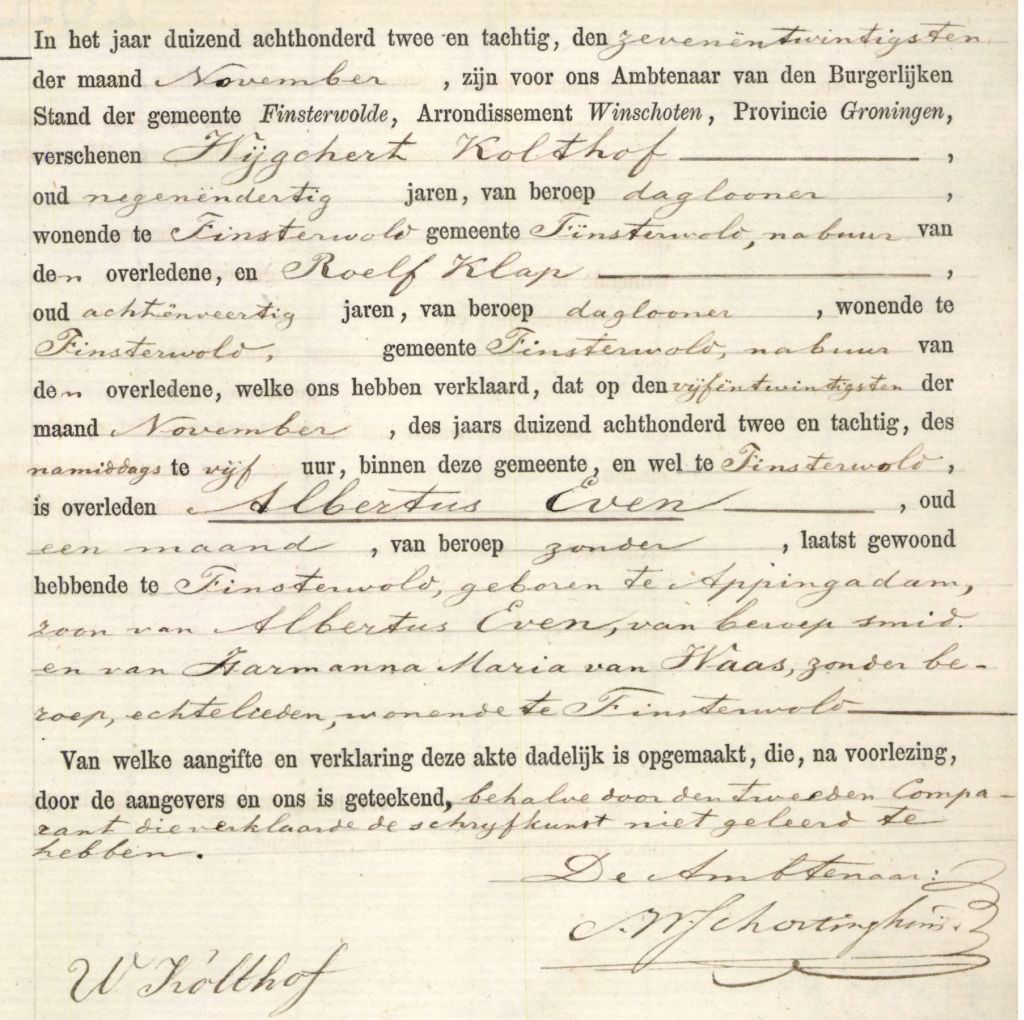 In het jaar duizend achthonderd twee en tachtig, den zevenëntwintigsten
der maand November , zijn voor ons Ambtenaar van den Burgerlijken
Stand der gemeente Finsterwolde, Arrondissement Winschoten, Provincie Groningen,
verschenen Wijgchert Kolthof ,
oud negenëndertig jaren, van beroep daglooner ,
wonende te Finsterwold gemeente Finsterwold, nabuur van
den overledene, en Roelf Klap ,
oud achtënveertig jaren, van beroep daglooner , wonende te
Finsterwold, gemeente Finsterwold, nabuur van
den overledene, welke ons hebben verklaard, dat op den vijfëntwintigsten der
maand November , des jaars duizend achthonderd twee en tachtig, des
namiddags te vijf uur, binnen deze gemeente, en wel te Finsterwold ,
is overleden Albertus Even , oud
een maand , van beroep zonder , laatst gewoond
hebbende te Finsterwold, geboren te Appingadam,
zoon van Albertus Even, van beroep smid.
en van Harmanna Maria van Waas, zonder be-
roep, echtelieden, wonende te Finsterwold
Van welke aangifte en verklaring deze akte dadelijk is opgemaakt, die, na voorlezing,
door de aangevers en ons is geteekend, behalve door den tweeden Compa-
rant die verklaarde de schrijfkunst niet geleerd te
hebben.
De Ambtenaar:
W Kolthof